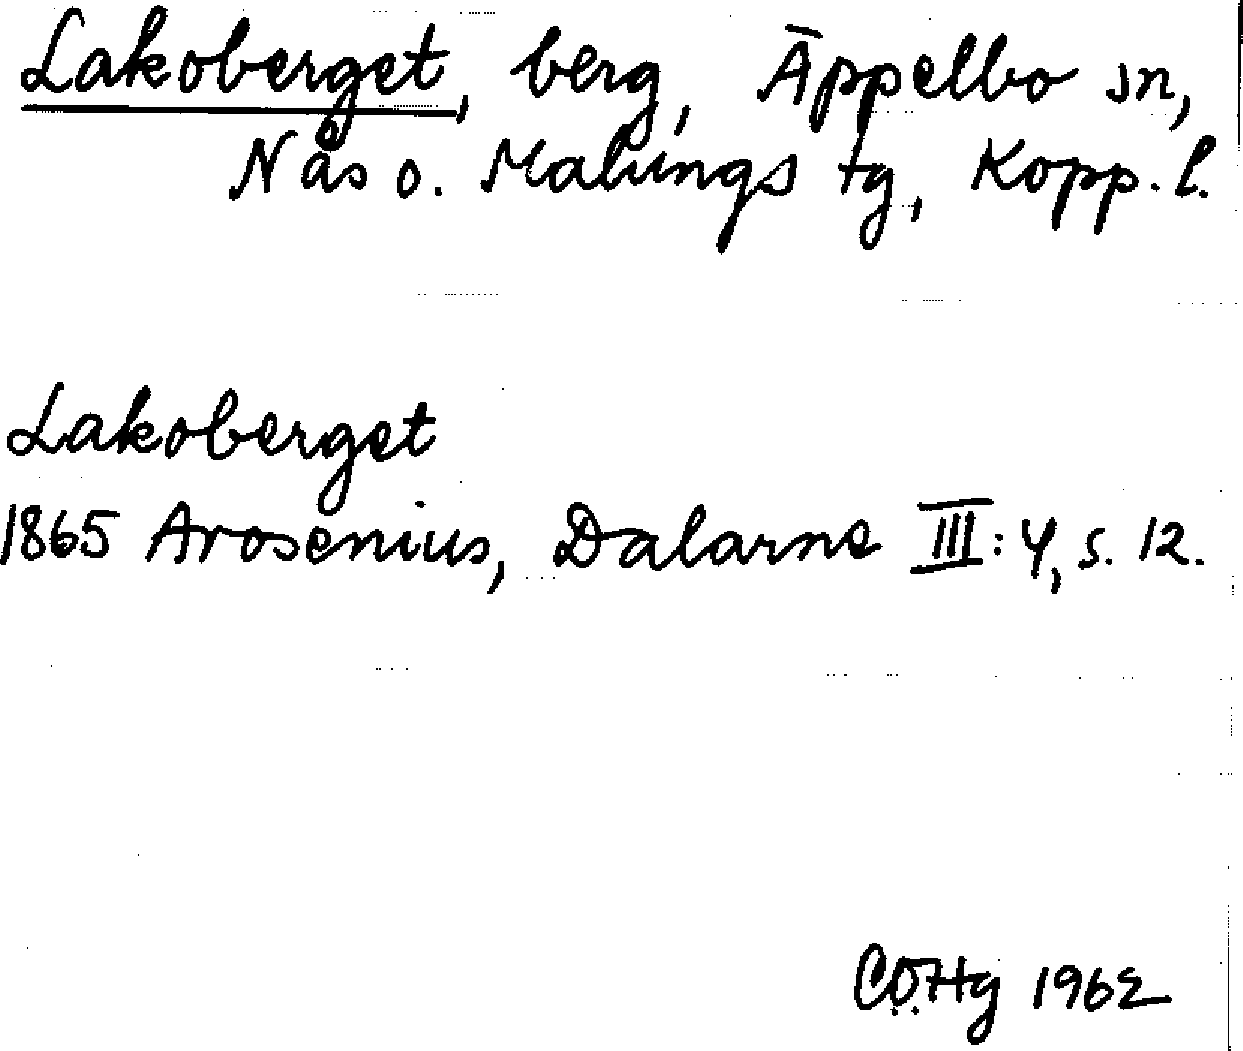 Lakoberget, berg, Äppelbo sn,
Nås o. Malungs tg, Kopp. l.
Lakoberget
1865 Arosenius, Dalarne III: 4, s. 12.
CÖHg 1962